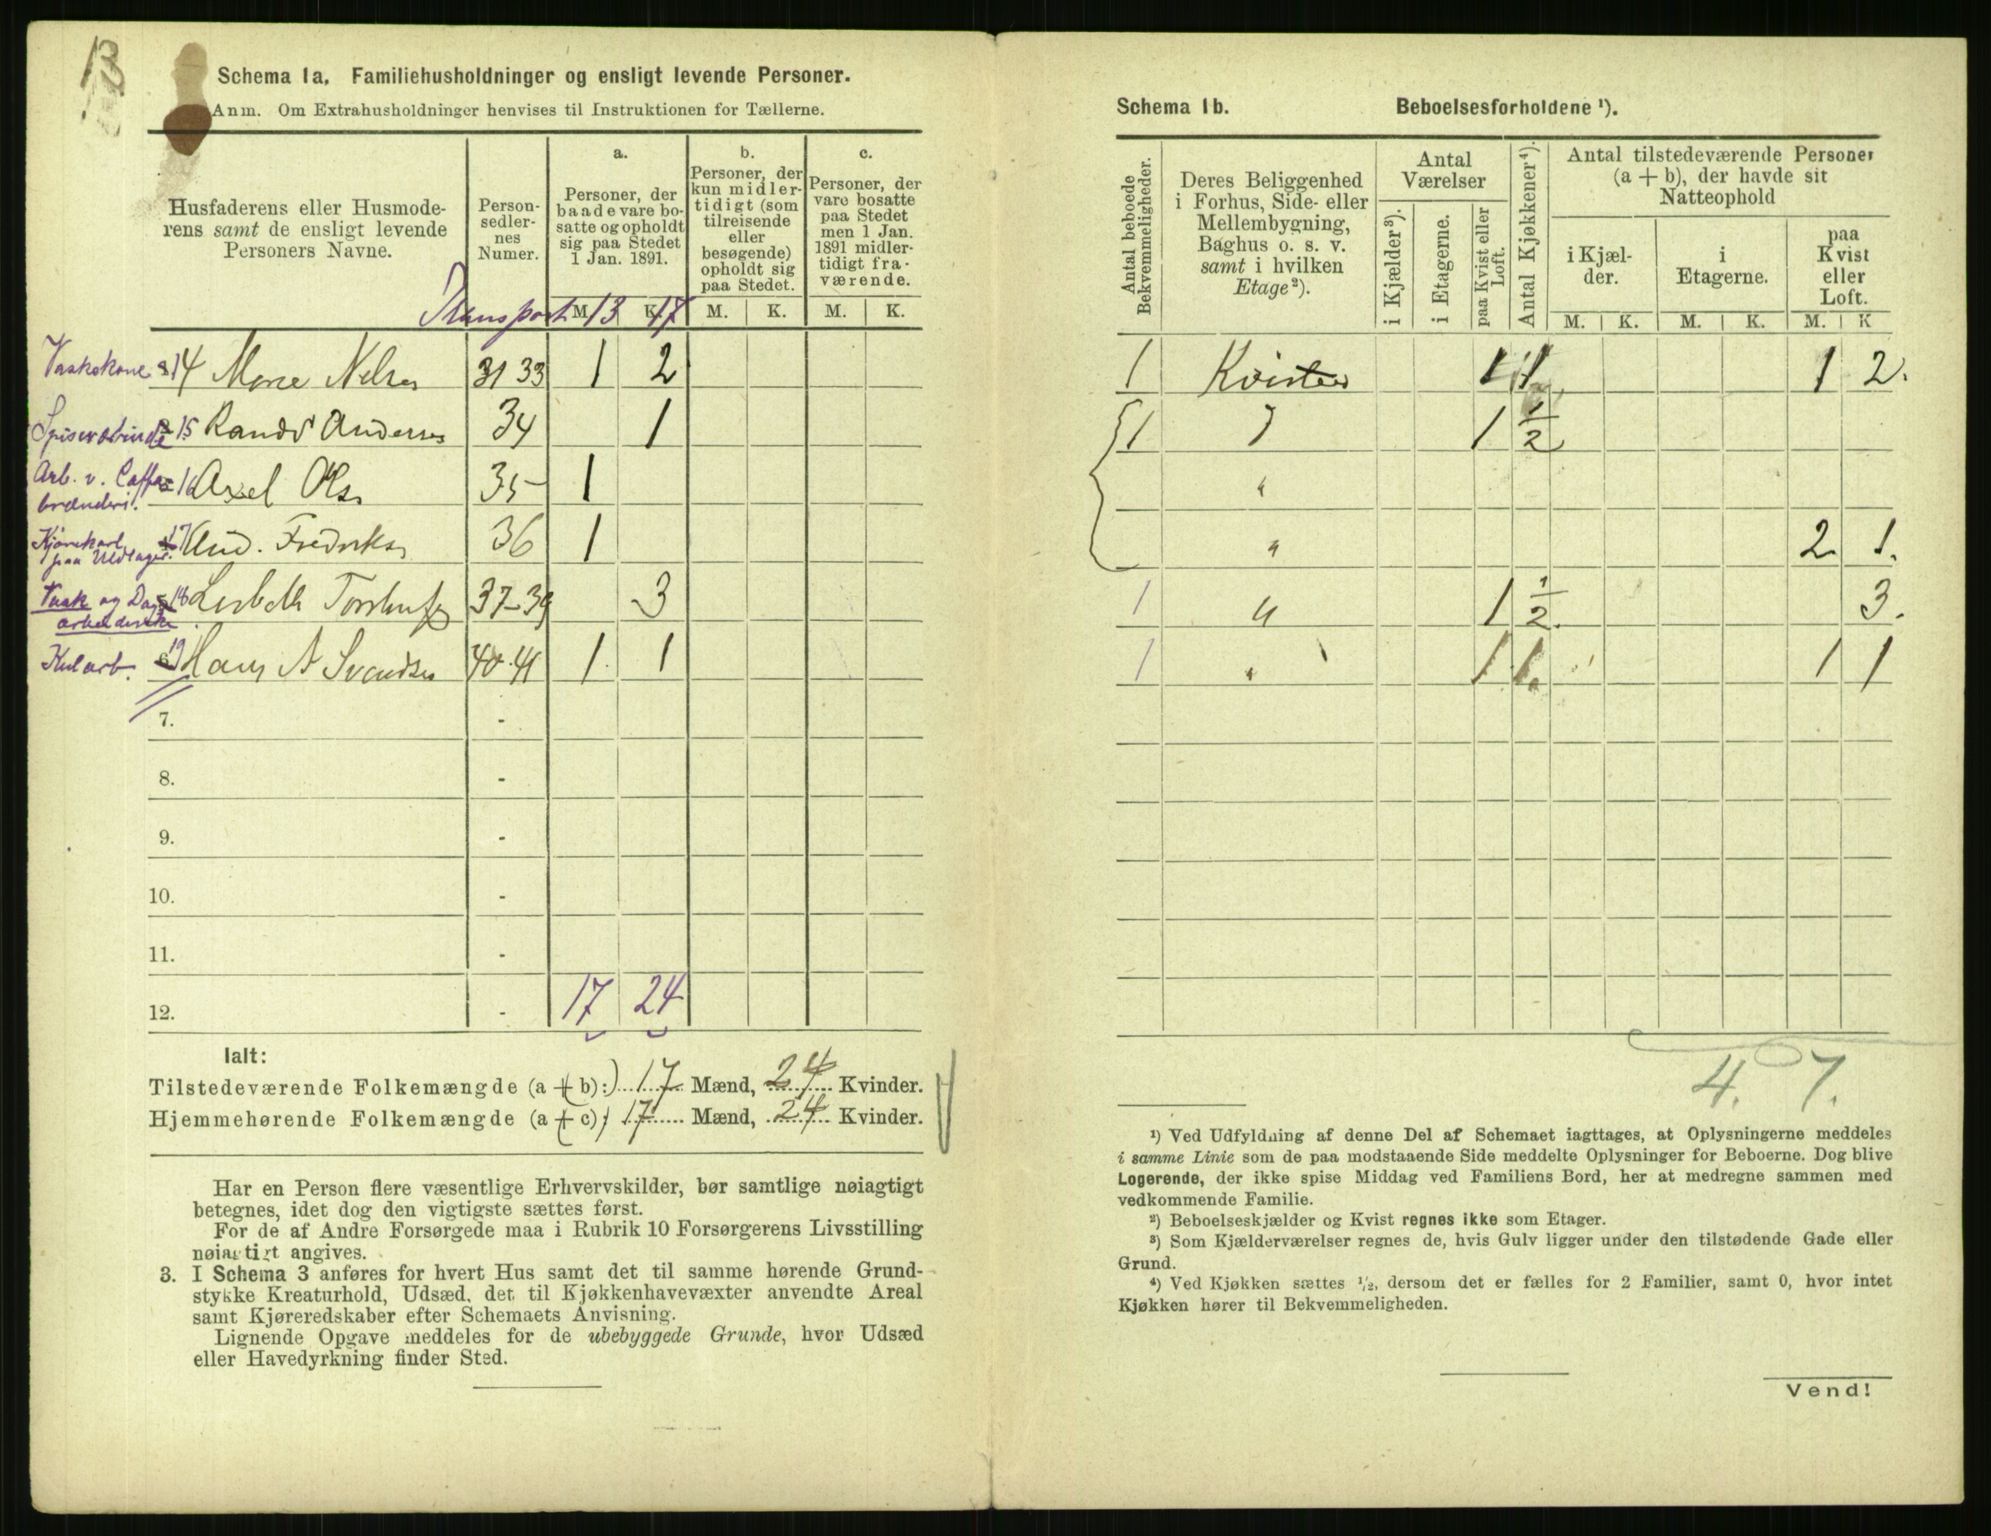 Schema 1a. Familiehusholdninger og ensligt levende Personer.
Anm. Om Extrahusholdninger henvises til Instruktionen for Tællerne.
Husfaderens eller Husmode-
rens samt de ensligt levende
Personers Navne.
Person-
sedler-
nes
Numer.
a.
Personer, der
baade vare bo-
satte og opholdt
sig paa Stedet
1 Jan. 1891.
b.
Personer, der
kun midler-
tidigt (som
tilreisende
eller
besøgende)
opholdt sig
paa Stedet.
c.
Personer, der
vare bosatte
paa Stedet
men 1 Jan.
1891 midler-
tidigt fra-
værende.
Transport M. 13 K. 17 M. K. M. K.
Vaskekone 14 Marie Nelsen 31 33 1 2
15 Randi Andersen 34 1
Arb. v. Caffe 16 Axel Olsen 35 1
brænderi.
Kjørekarl 17 And. Fredriksen 36 1
paa Uldlager.
Vask og Dag 18 Lisbeth 37-39 3
arbeiderske
Kularb. 19 Hans A Svendsen 40-41 1 1
7. -
8. -
9. -
10. -
11. -
12. - 17 24
Ialt:
Tilstedeværende Folkemængde (a + b): 17 Mænd, 24 Kvinder.
Hjemmehørende Folkemængde (a + c): 17 Mænd, 24 Kvinder.
Har en Person flere væsentlige Erhvervskilder, bør samtlige nøiagtigt
betegnes, idet dog den vigtigste sættes først.
For de af Andre Forsørgede maa i Rubrik 10 Forsørgerens Livsstilling
nøiagtigt angives.
3. I Schema 3 anføres for hvert Hus samt det til samme hørende Grund-
stykke Kreaturhold, Udsæd, det til Kjøkkenhavevæxter anvendte Areal
samt Kjøreredskaber efter Schemaets Anvisning.
Lignende Opgave meddeles for de ubebyggede Grunde, hvor Udsæd
eller Havedyrkning finder Sted.
Schema 1b. Beboelsesforholdene ¹).
Antal beboede
Bekvemmeligheder.
Deres Beliggenhed
i Forhus, Side- eller
Mellembygning,
Baghus o. s. v.
samt i hvilken
Etage²).
Antal
Værelser
i Kjælder³).
i Etagerne.
paa Kvist eller
Loft.
Antal Kjøkkener⁴).
Antal tilstedeværende Personer
(a + b), der havde sit
Natteophold
i Kjæl-
der.
i
Etagerne.
paa
Kvist
eller
Loft.
M. K. M. K. M. K
1 Kvisten 1 1 1 2.
1 " 1 1/2
"
" 2. 1.
1 " 1 1/2. 3.
1 " 1. 1. 1 1
4. 7.
¹) Ved Udfyldning af denne Del af Schemaet iagttages, at Oplysningerne meddeles
i samme Linie som de paa modstaaende Side meddelte Oplysninger for Beboerne. Dog blive
Logerende, der ikke spise Middag ved Familiens Bord, her at medregne sammen med
vedkommende Familie.
²) Beboelseskjælder og Kvist regnes ikke som Etager.
³) Som Kjælderværelser regnes de, hvis Gulv ligger under den tilstødende Gade eller
Grund.
⁴) Ved Kjøkken sættes ¹/₂, dersom det er fælles for 2 Familier, samt 0, hvor intet
Kjøkken hører til Bekvemmeligheden.
Vend!